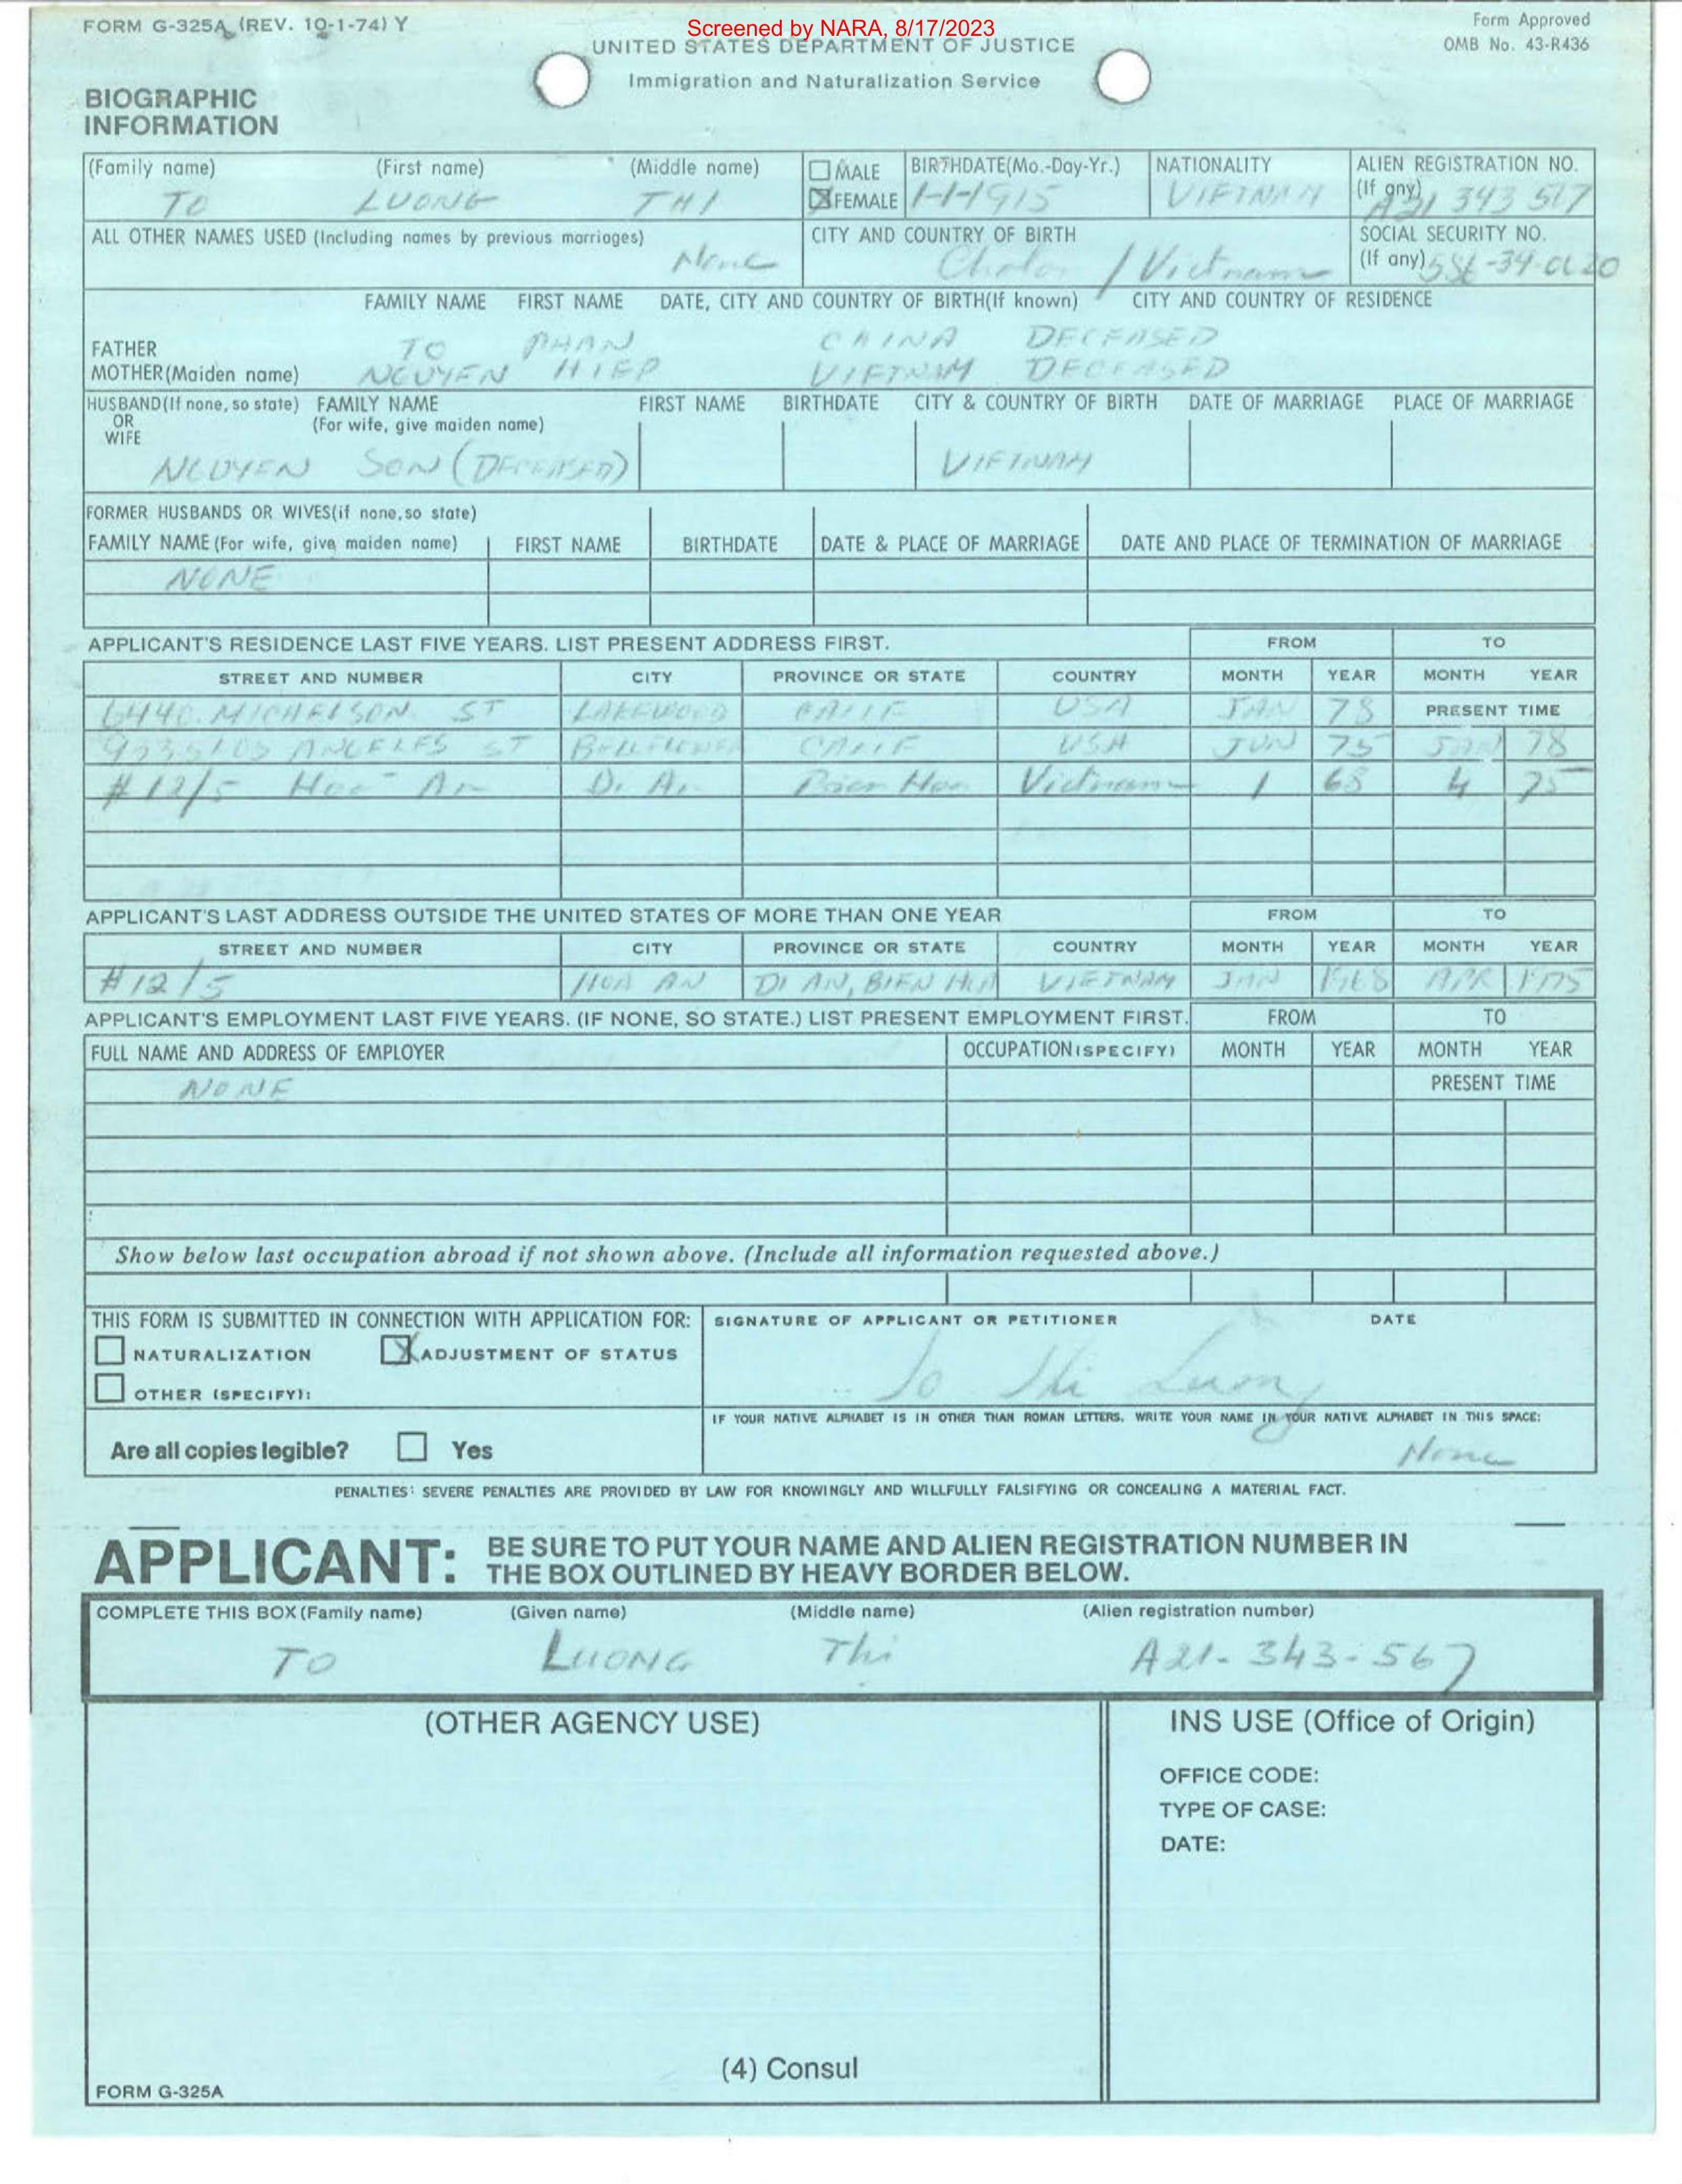 FORM G-325A (REV. 10-1-74) Y
Screened by NARA, 8/17/2023
Form Approved
OMB No. 43-R436
UNITED STATES DEPARTMENT OF JUSTICE
Immigration and Naturalization Service
BIOGRAPHIC
INFORMATION
(Family name) (First name) (Middle name) MALE BIRTHDATE(Mo.-Day-Yr.) NATIONALITY ALIEN REGISTRATION NO.
TO LUONG THI FEMALE 1-1-1915 VIETNAM (If any) A21 343 567
ALL OTHER NAMES USED (Including names by previous marriages) CITY AND COUNTRY OF BIRTH SOCIAL SECURITY NO.
None Cholon / Vietnam (If any)
FAMILY NAME FIRST NAME DATE, CITY AND COUNTRY OF BIRTH(If known) CITY AND COUNTRY OF RESIDENCE
FATHER TO PHAN CHINA DECEASED
MOTHER(Maiden name) NGUYEN HIEP VIETNAM DECEASED
HUSBAND(If none, so state) FAMILY NAME FIRST NAME BIRTHDATE CITY & COUNTRY OF BIRTH DATE OF MARRIAGE PLACE OF MARRIAGE
OR (For wife, give maiden name)
WIFE
NGUYEN SON (DECEASED) VIETNAM
FORMER HUSBANDS OR WIVES(if none,so state)
FAMILY NAME (For wife, give maiden name) FIRST NAME BIRTHDATE DATE & PLACE OF MARRIAGE DATE AND PLACE OF TERMINATION OF MARRIAGE
NONE
APPLICANT'S RESIDENCE LAST FIVE YEARS. LIST PRESENT ADDRESS FIRST. FROM TO
STREET AND NUMBER CITY PROVINCE OR STATE COUNTRY MONTH YEAR MONTH YEAR
6440 MICHELSON ST LAKEWOOD CALIF USA JAN 78 PRESENT TIME
LOS ANGELES ST BELLFLOWER CALIF USA JUN 75 JAN 78
#12/5 Hoa An Di An Bien Hoa Vietnam 1 68 4 75
APPLICANT'S LAST ADDRESS OUTSIDE THE UNITED STATES OF MORE THAN ONE YEAR FROM TO
STREET AND NUMBER CITY PROVINCE OR STATE COUNTRY MONTH YEAR MONTH YEAR
#12/5 HOA AN DI AN, BIEN HOA VIETNAM JAN 1968 APR 1975
APPLICANT'S EMPLOYMENT LAST FIVE YEARS. (IF NONE, SO STATE.) LIST PRESENT EMPLOYMENT FIRST. FROM TO
FULL NAME AND ADDRESS OF EMPLOYER OCCUPATION (SPECIFY) MONTH YEAR MONTH YEAR
NONE PRESENT TIME
Show below last occupation abroad if not shown above. (Include all information requested above.)
THIS FORM IS SUBMITTED IN CONNECTION WITH APPLICATION FOR: SIGNATURE OF APPLICANT OR PETITIONER DATE
NATURALIZATION ADJUSTMENT OF STATUS
To Thi Luong
OTHER (SPECIFY):
IF YOUR NATIVE ALPHABET IS IN OTHER THAN ROMAN LETTERS, WRITE YOUR NAME IN YOUR NATIVE ALPHABET IN THIS SPACE:
Are all copies legible? Yes None
PENALTIES: SEVERE PENALTIES ARE PROVIDED BY LAW FOR KNOWINGLY AND WILLFULLY FALSIFYING OR CONCEALING A MATERIAL FACT.
APPLICANT: BE SURE TO PUT YOUR NAME AND ALIEN REGISTRATION NUMBER IN
THE BOX OUTLINED BY HEAVY BORDER BELOW.
COMPLETE THIS BOX (Family name) (Given name) (Middle name) (Alien registration number)
TO LUONG Thi A21-343-567
(OTHER AGENCY USE) INS USE (Office of Origin)
OFFICE CODE:
TYPE OF CASE:
DATE:
(4) Consul
FORM G-325A